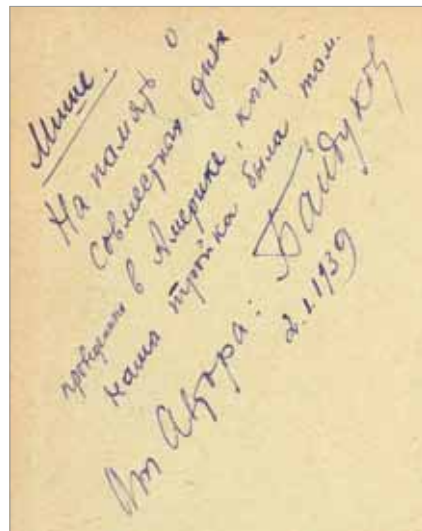 Мише.
На память о
совместных днях
проведенных в Америке, когда
наша тройка была там.
От Автора: Байдуков
2.I.1939